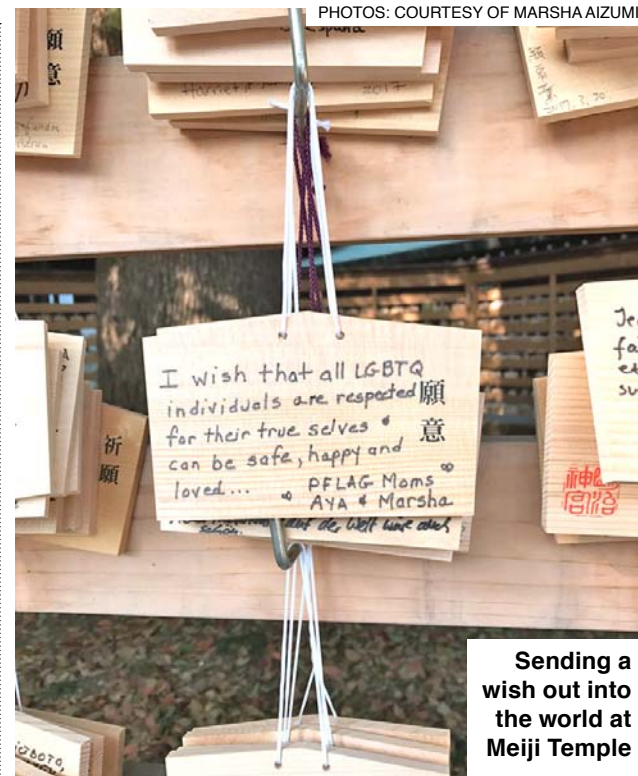 PHOTOS: COURTESY OF MARSHA AIZUMI
願
意
Harriet
2017
2017. 3. 20.
I wish that all LGBTQ
individuals are respected
for their true selves &
can be safe, happy and
loved...
PFLAG Moms
AYA & Marsha
願
意
auf der Welt wäre auch
schön.
祈
願
Je
fai
et
su
明治
神宮
Sending a
wish out into
the world at
Meiji Temple